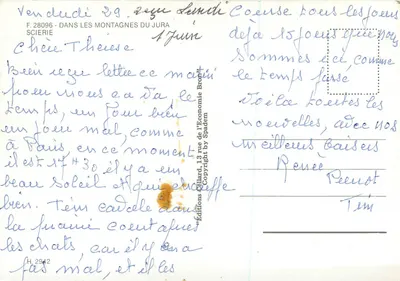 Vendredi 29. reçu Lundi
1 Juin
F. 28096 - DANS LES MONTAGNES DU JURA
SCIERIE
Chère Thérèse
Bien reçu lettre ce matin
pour nous ca va le
temps, un jour bien
un jour mal, comme
à Paris, en ce moment
il est 17 H 30, il y a un
beau soleil et qui chauffe
bien. Tim cavale dans
la prairie court après
les chats, car il y en a
pas mal, et il les
H. 2942
Editions Gilland, 13 rue de l'Economie
Copyright by Spadem
Course tous les jours
déjà 15 jours que nous
sommes ici, comme
le temps passe
Voilà toutes les
nouvelles, avec nos
meilleurs baisers
Renée
Pierrot
Tim